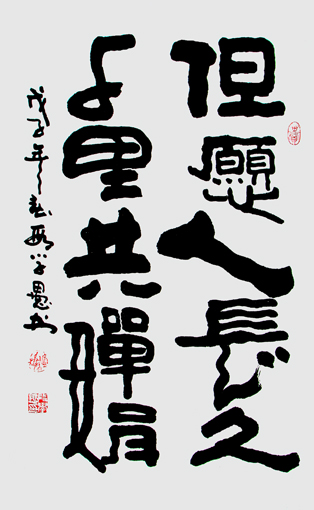 但願人長久
千里共嬋娟
戊子年春